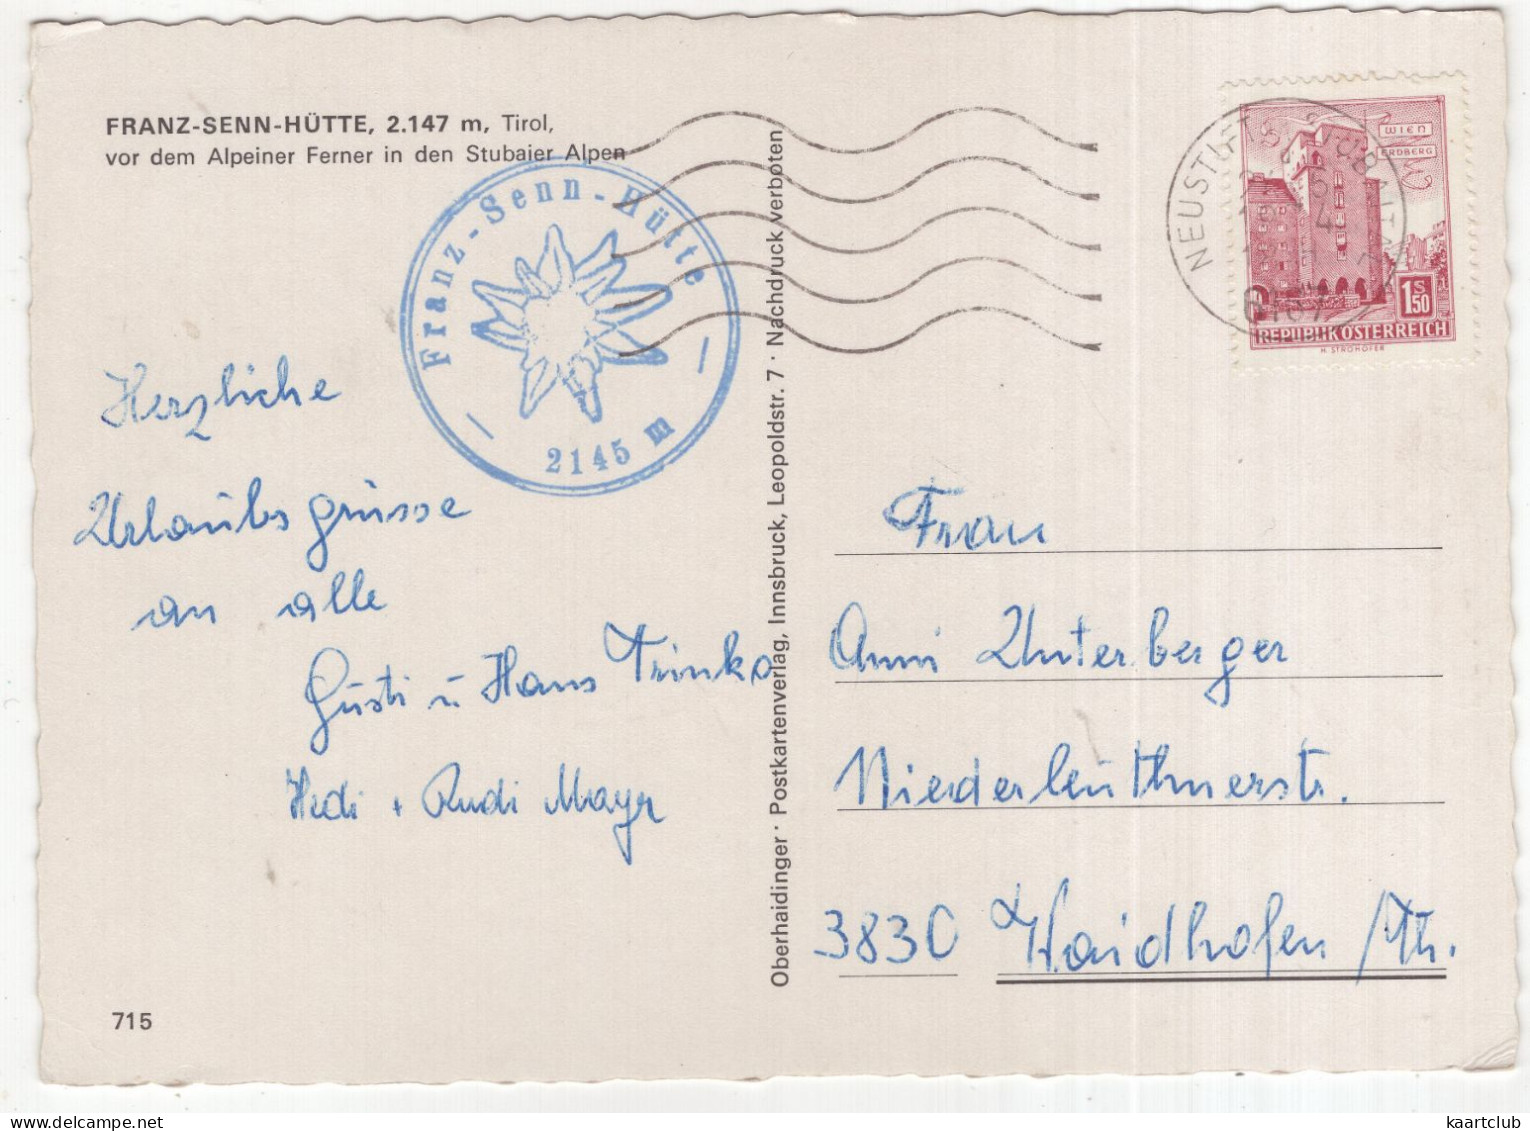 FRANZ-SENN-HÜTTE, 2.147 m, Tirol,
vor dem Alpeiner Ferner in den Stubaier Alpen
Franz-Senn-Hütte
2145 m
Herzliche
Urlaubsgrüsse
an alle
Gusti u Hans Trinko
Hedi + Rudi Mayr
715
Oberhaidinger · Postkartenverlag, Innsbruck, Leopoldstr. 7 · Nachdruck verboten
NEUSTIFT
WIEN
ERDBERG
1 S 50
REPUBLIK ÖSTERREICH
H. STROHOFER
Frau
Anni Unterberger
Niederleuthnerstr.
3830 Waidhofen /Th.
kaartclub